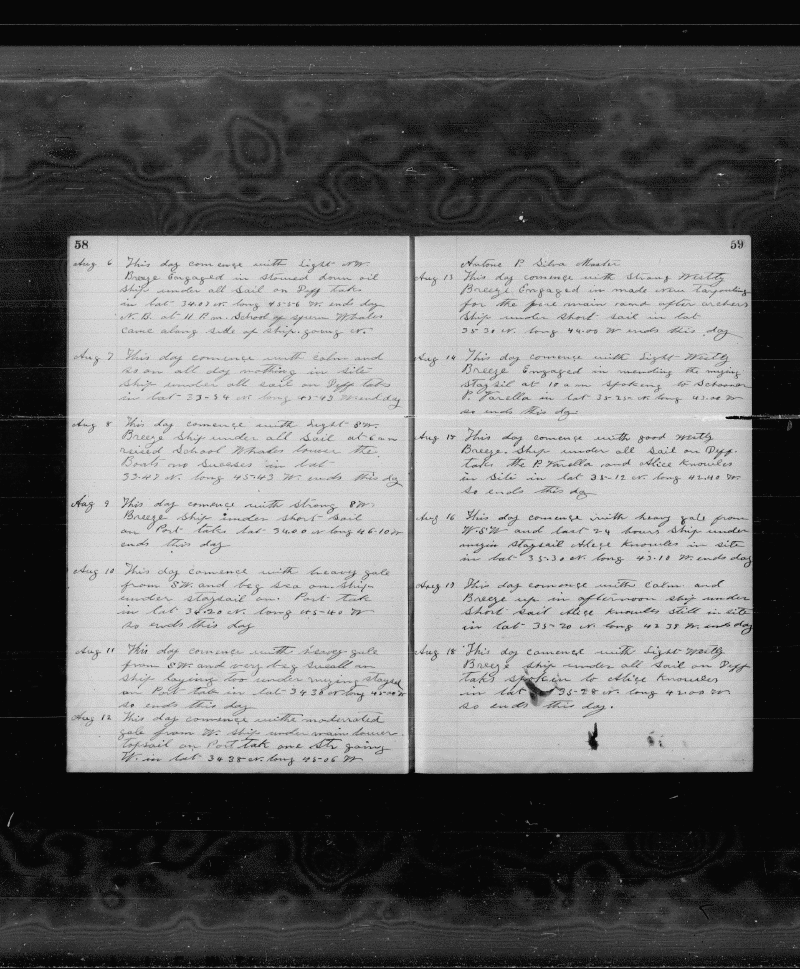 58
Aug 6 This day comence with Light N.W.
Breeze Engaged in stowed down oil
Ship under all Sail on Deff taks
in lat 34.07 N. long 45-56 W. end day
N.B. at 11 P.m. School of sperm Whales
came along side of ship. going N.
Aug 7 This day comence with calm and
so on all day nothing in site
Ship under all sail on Deff taks
in lat 33-54 N. long 45-43 W end day
Aug 8 This day comence with Light SW.
Breeze Ship under all Sail at 6 am
raised School Whales lower the
Boats no Sucsses in lat
33-47 N. long 45-43 W. ends this day
Aug 9 This day comence with strong SW
Breeze Ship under short sail
on Port taks lat 34.00 N long 46-10 W
ends this day
Aug 10 This day comence with heavy gale
from SW. and beg sea on. Ship
under staysail on. Port tak
in lat 34.20 N. long 45-40 W
so ends this day
Aug 11 This day comence with heavy gale
from SW. and very beg swall on
Ship laying too under
on Port tak in lat 34 38 N long
so ends this day
Aug 12 This day comence withe moderrated
gale from W. Ship under main lower
Topsail on Port tak one Str going
W. in lat 34-38 N. long 45-06 W
59
Antone P. Silva Master
Aug 13 This day comence with strong Westly
Breeze Engaged in made new
for the main
Ship under short sail in lat
35-30 N. long 44.00 W ends this day
Aug 14 This day comence with Light Westly
Breeze Engaged in mending the
stay sil at 10 am spokeng to Schooner
P. Varella in lat 35-25 N. long 43.00 W
so ends this day
Aug 15 This day comence with good Westly
Breeze. Ship under all Sail on Deff-
taks the P. Varella and Alice Knowles
in Site in lat 35-12 N. long 42.40 W.
so ends this day
Aug 16 This day comence with heavy gale from
W.S.W and last 24 hours Ship under
staysail Alice Knowles in site
in lat 35-30 N. long 43-10 W. ends day
This day comence with Calm and
Breeze up in afternoon ship under
Short sail Alice Knowles Still in site
in lat 35-20 N. long 42 38 W. ends day
Aug 18 This day comence with Light Westly
Breeze Ship under all Sail on Deff
taks spoken to Alice Knowles
in lat 35-28 N. long 42.00 W
so ends this day.